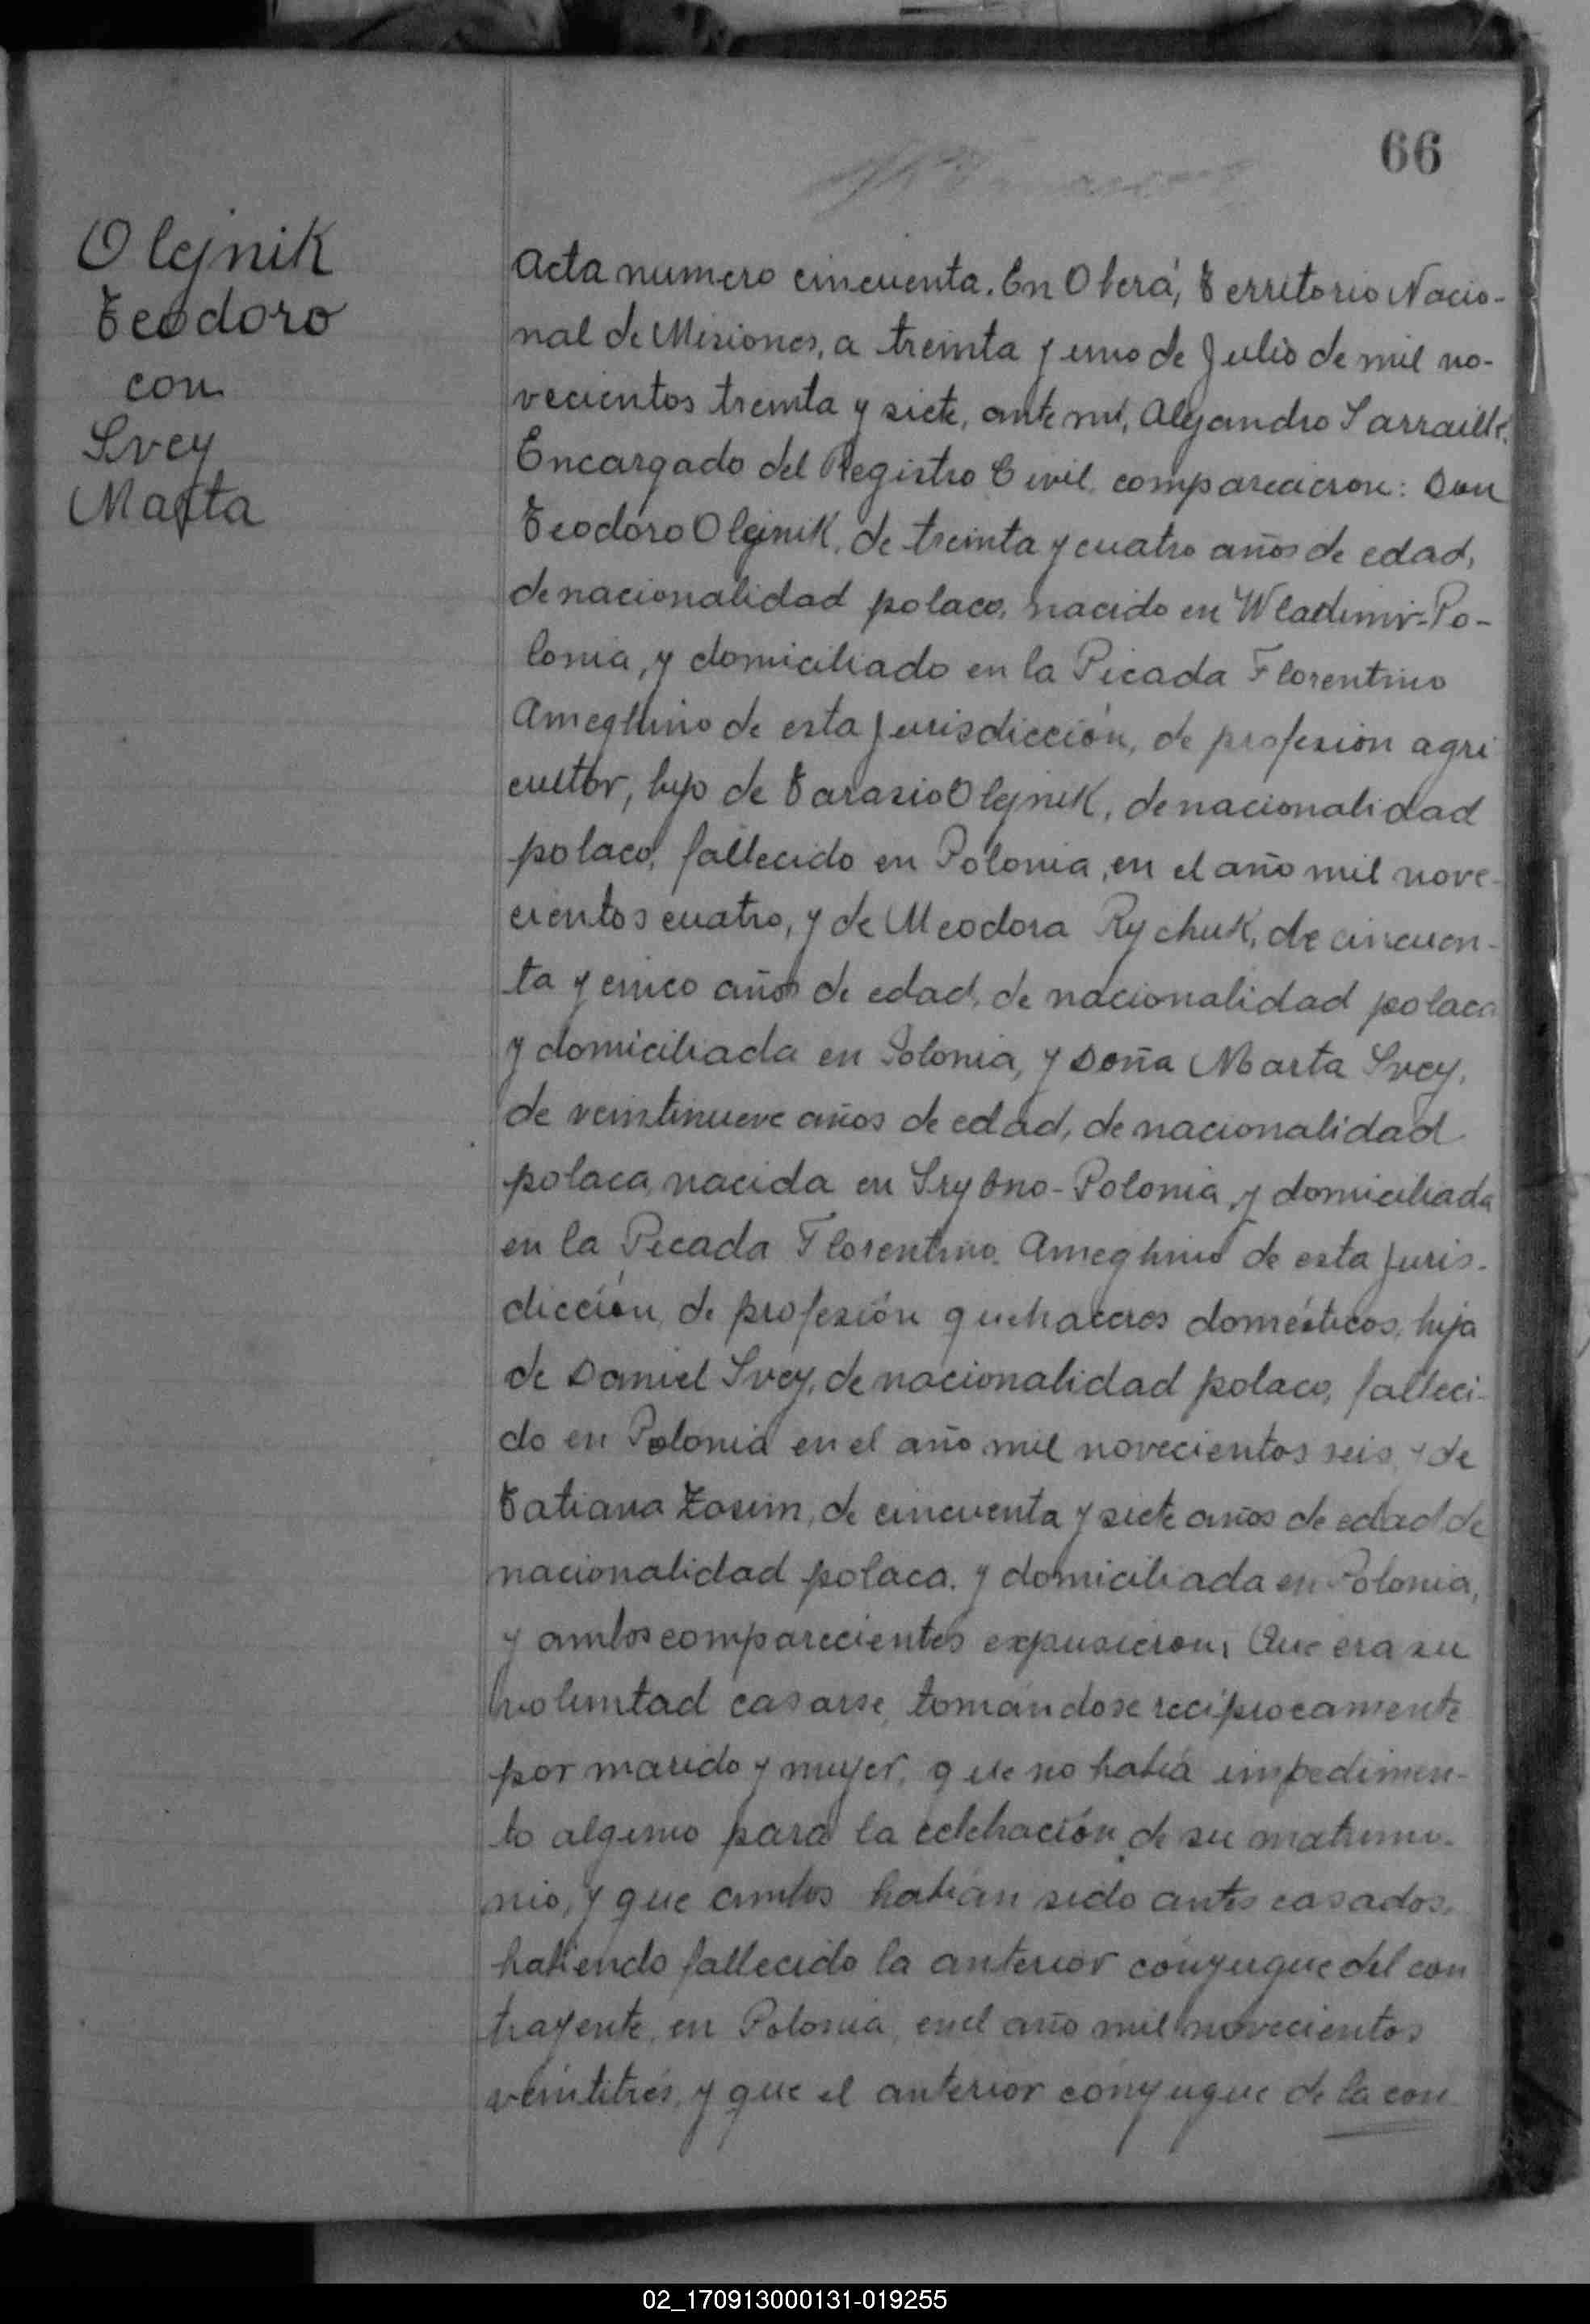 66
Olejnik
Teodoro
con
Svey
Marta
Acta numero cincuenta. En Oberá, Territorio Nacio-
nal de Misiones, a treinta y uno de Julio de mil no-
vecientos treinta y siete, ante mí, Alejandro Sarraillé,
Encargado del Registro Civil, comparecieron: Don
Teodoro Olejnik, de treinta y cuatro años de edad,
de nacionalidad polaco, nacido en Wladimir-Po-
lonia, y domiciliado en la Picada Florentino
Ameghino de esta Jurisdicción, de profesión agri
cultor, hijo de Tarasio Olejnik, de nacionalidad
polaco, fallecido en Polonia, en el año mil nove-
cientos cuatro, y de Meodora Rychuk, de cincuen-
ta y cinco años de edad, de nacionalidad polaca
y domiciliada en Polonia, y Doña Marta Svey,
de veintinueve años de edad, de nacionalidad
polaca, nacida en Srybno-Polonia y domiciliada
en la Picada Florentino Ameghino de esta Juris-
dicción, de profesión quehaceres domésticos, hija
de Daniel Svey, de nacionalidad polaco, falleci-
do en Polonia en el año mil novecientos seis y de
Tatiana Zosim, de cincuenta y siete años de edad de
nacionalidad polaca, y domiciliada en Polonia,
y ambos comparecientes expusieron: Que era su
voluntad casarse, tomándose recíprocamente
por marido y mujer, que no había impedimen-
to alguno para la celebración de su matrimo-
nio, y que ambos habían sido antes casados,
habiendo fallecido la anterior cónyugue del con
trayente, en Polonia, en el año mil novecientos
veintitrés, y que el anterior cónyugue de la con
02_170913000131-019255